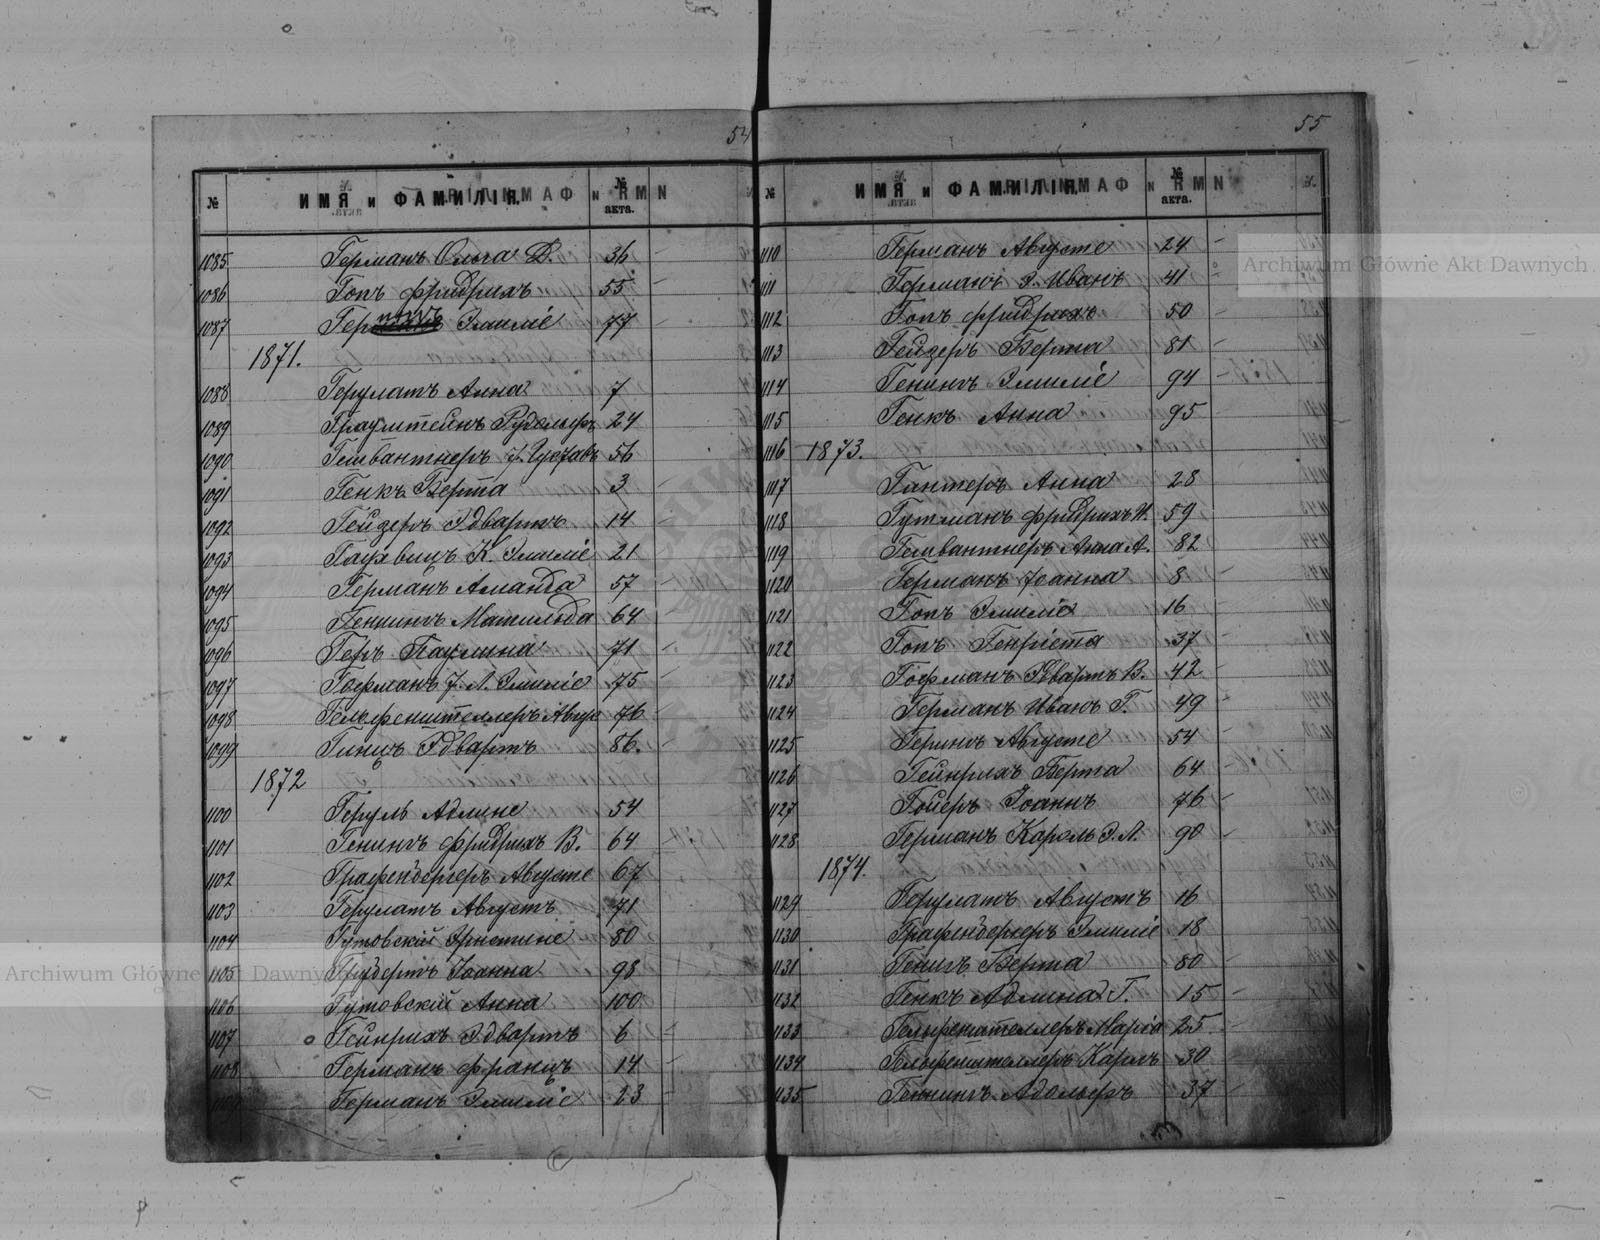 54
№ ИМЯ и ФАМИЛІЯ. № акта.
1085 Германъ Ольга 36 –
1086 Гопъ Фридрихъ 55 –
1087 Эмиліе 77 –
1871.
1088 Герулатъ Анна 7
1089 Рудольфъ 24
1090 Гельвантнеръ Густавъ 56
1091 Генкъ Берта 3 –
1092 Гейзеръ Эдвартъ 14 –
1093 К. Эмиліе 21
1094 Германъ Аманда 57 –
1095 Геннингъ Матильда 64 –
1096 Геръ Паулина 71 –
1097 Гофманъ Ј. Л. Эмиліе 75 –
1098 Гельфенштеллеръ Авгус 76 –
1099 Гинцъ Эдвартъ 86.
1872
1100 Геруль Адлине 54
1101 Генингъ Фридрихъ В. 64 –
1102 Графенбергеръ Августе 67
1103 Герулатъ Августъ 71
1104 Гутовскій Эрнстине 80
1105 Грубертъ Іоанна 98
1106 Гутовскій Анна 100
1107 Гейнрихъ Эдвартъ 6 –
1108 Германъ Францъ 14 –
1109 Германъ Эмиліе 23 –
55
№ ИМЯ и ФАМИЛІЯ. № акта.
1110 Германъ Августе 24 –
1111 Германъ Э. Иванъ 41 –
1112 Гопъ Фридрихъ 50 –
1113 Гейзеръ Берта 81 –
1114 Генингъ Эмиліе 94 –
1115 Генкъ Анна 95 –
1116 1873.
1117 Гантеръ Анна 28
1118 Гутманъ Фридрихъ 59
1119 Гельвантнеръ Анна А. 82 –
1120 Германъ Іоанна 8 –
1121 Гопъ Эмилія 16 –
1122 Гопъ Генріета 37 –
1123 Гофманъ Эдвартъ В. 42 –
1124 Германъ Иванъ Г. 49 –
1125 Герингъ Августе 54 –
1126 Гейнрихъ Берта 64 –
1127 Гойеръ Іоаннъ 76 –
1128 Германъ Кароль Э. Л. 90 –
1874.
1129 Герулатъ Августъ 16
1130 Графенбергеръ Эмиліе 18
1131 Генигъ Берта 80
1132 Генкъ Адлина Г. 15 –
1133 Гельфенштеллеръ Марія 25 –
1134 Гельфенштеллеръ Карлъ 30
1135 Геннингъ Адольфъ 37 –
Archiwum Główne Akt Dawnych
Archiwum Główne Akt Dawnych